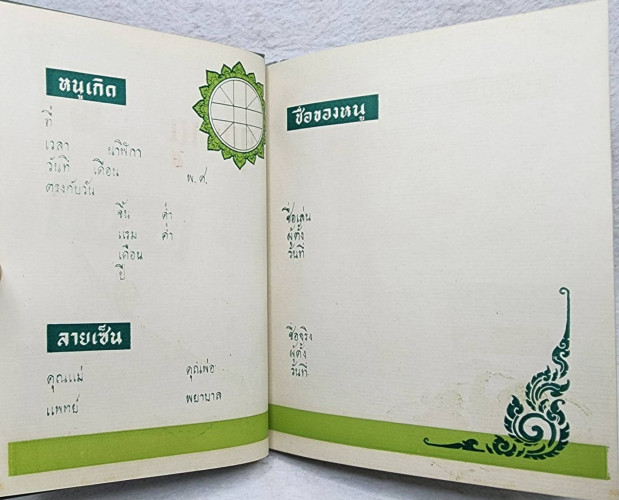 หนูเกิด
ที่
เวลา นาฬิกา
วันที่ เดือน พ.ศ.
ตรงกับวัน
ขึ้น ค่ำ
แรม ค่ำ
เดือน
ปี
ลายเซ็น
คุณแม่ คุณพ่อ
แพทย์ พยาบาล
ชื่อของหนู
ชื่อเล่น
ผู้ตั้ง
วันที่
ชื่อจริง
ผู้ตั้ง
วันที่